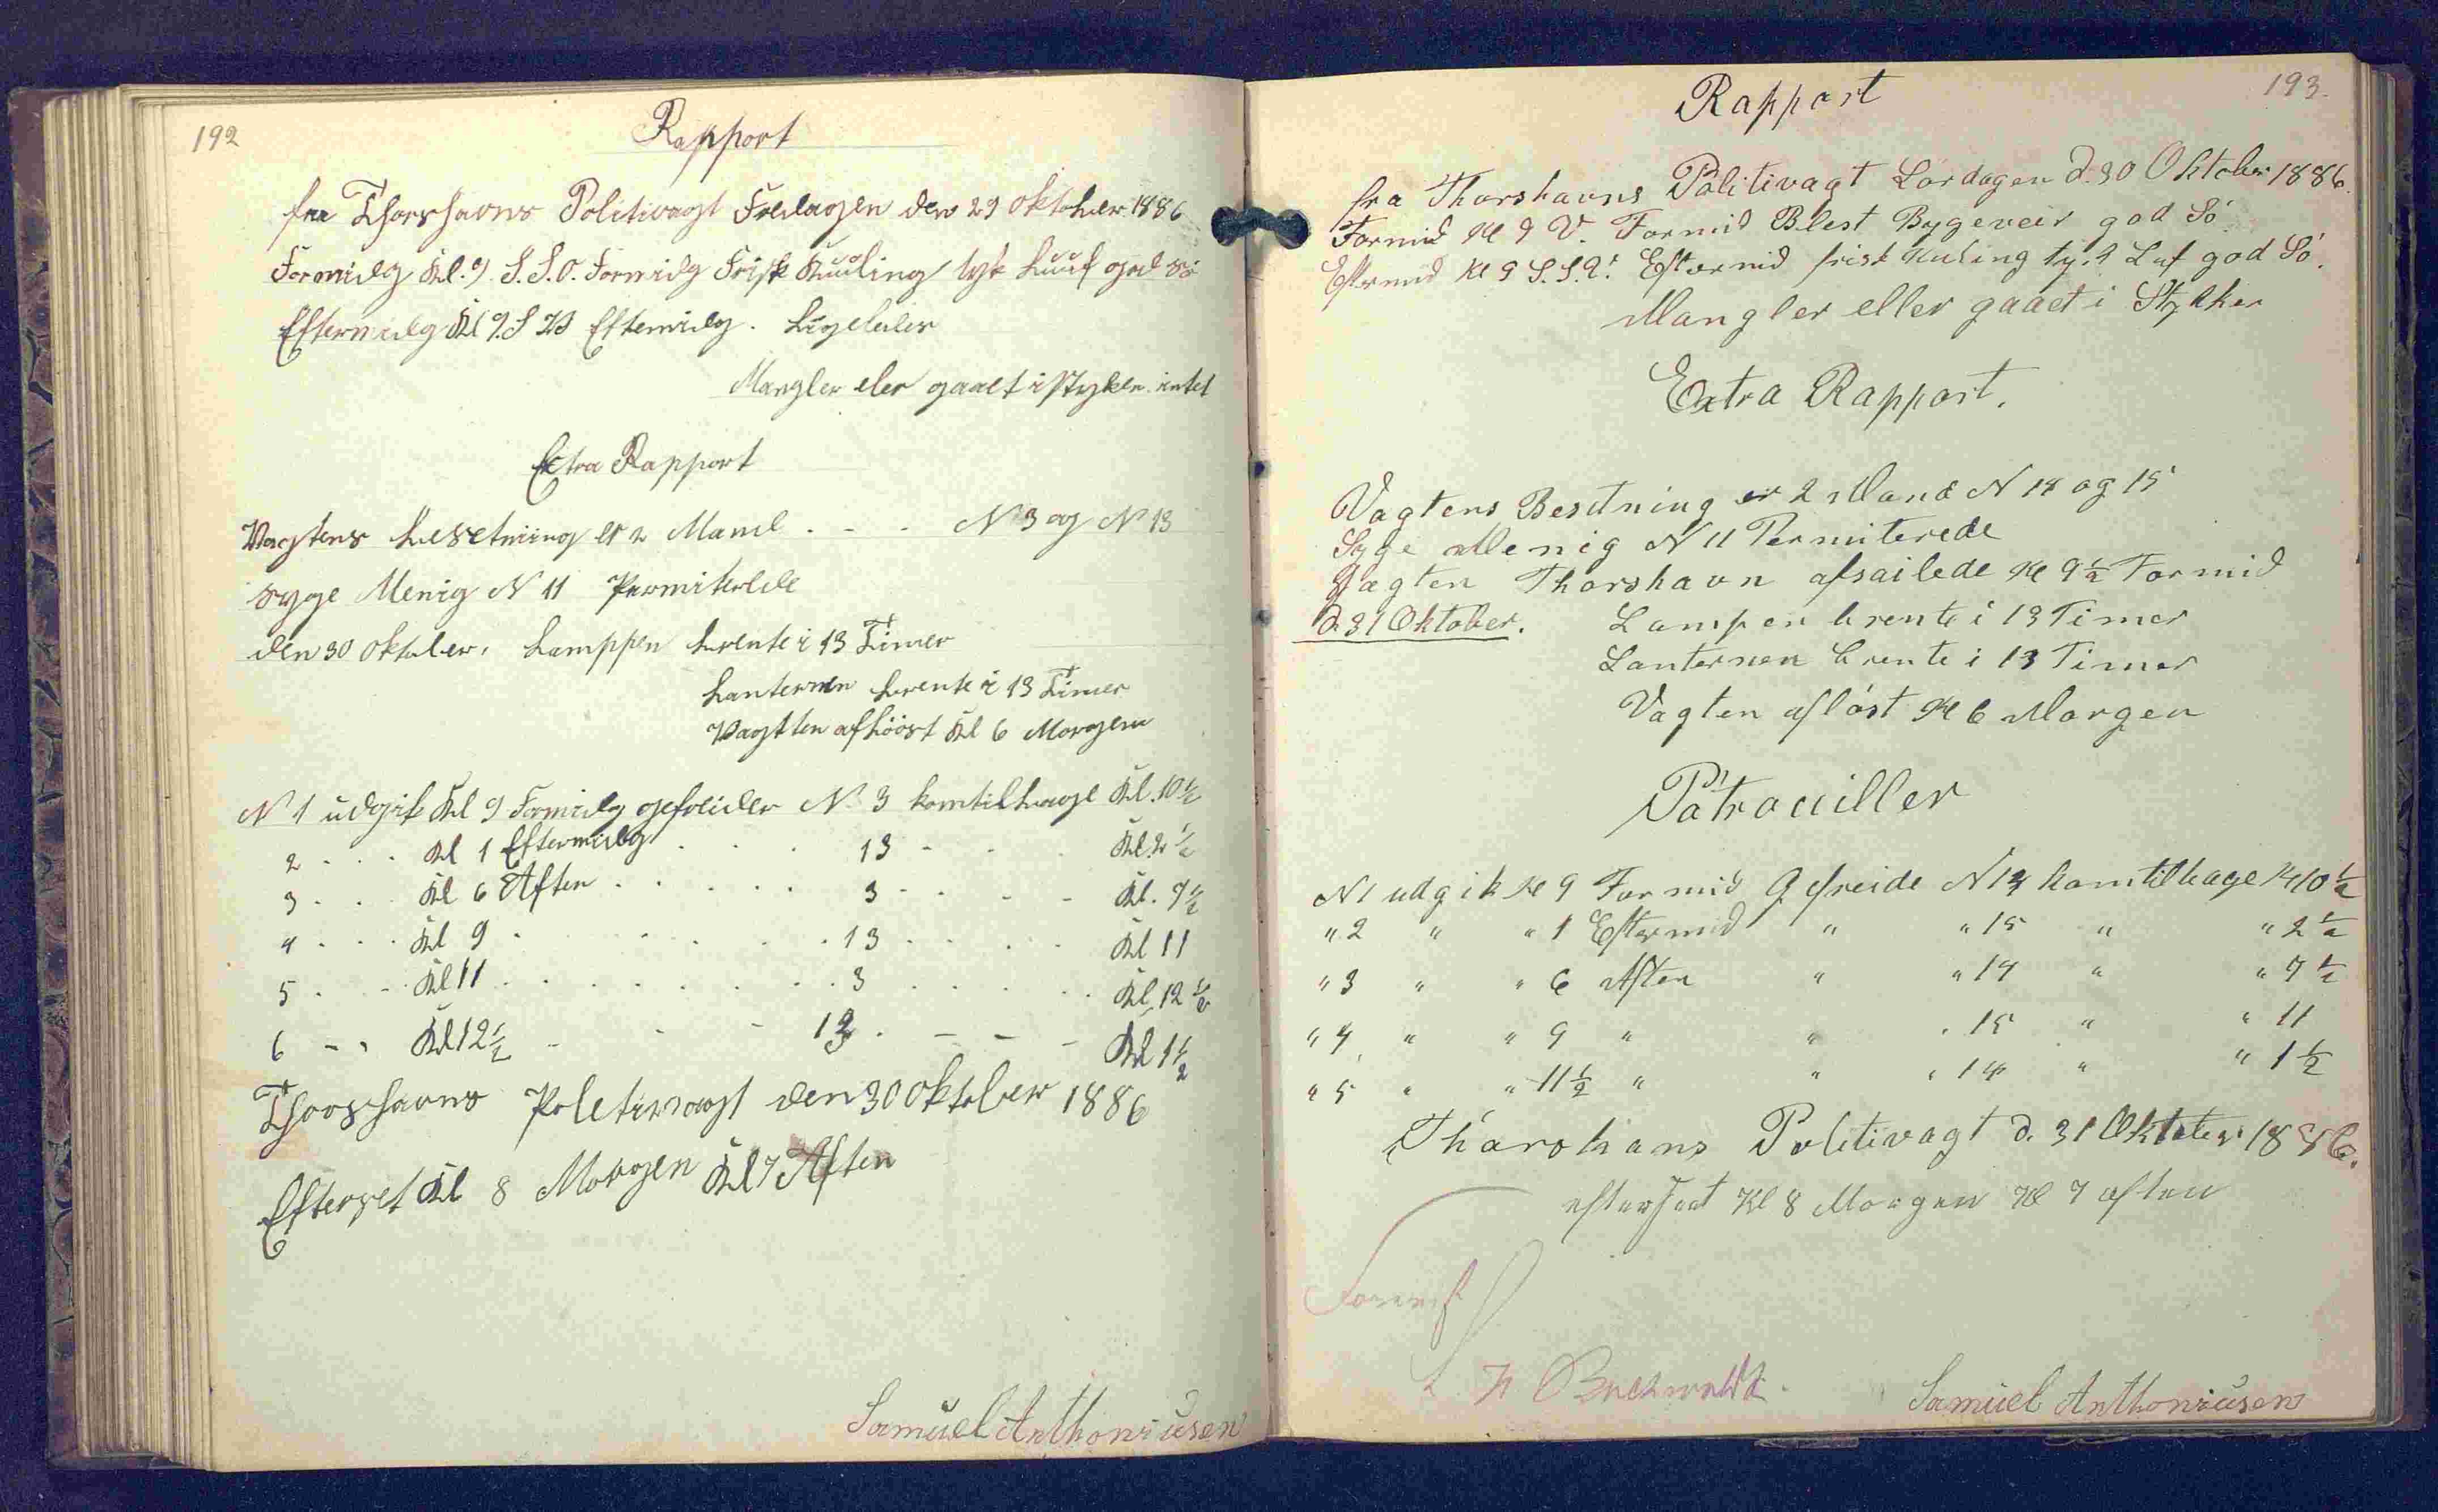 192
Rapport
fra Thorshavns Politivagt Fredagen den 29 Oktober 1886
Formidg Kl. 9 S.S.O. Formidg Frisk Kuuling tyk Luuft god Sö
Eftermidg Kl 9. S V Eftemidg. Ligeledes
Mangler eler gaaet i Styker intet
Extra Rapport
Vagtens besetniing er 2 Mand . - - N 3 og N 13
Syge Menig N 11 Permiterede
den 30 Oktober. Lamppen brente i 13 Timer
Lanternen brente i 13 Timer
Vagtten aflööst Kl 6 Morgen
N 1 udgik Kl 9 Formidg gefreider N 3 komtilbage Kl. 10 1/2
2 . . . Kl 1 Eftermidg . . . 13 - . . Kl. 2 1/2
3 . . Kl 6 Aften . . . . . 3 - . - - Kl. 7 1/2
4 . . . Kl 9 . . . . . 13 . . . . Kl 11
5 . - Kl 11 . . . . . . . 3 . . . . . Kl. 12 1/2
6 - . Kl 12 1/2 - - - 13 . - - - Kl 1 1/2
Thorshavns Poletivagt den 30 Oktober 1886
Efterset Kl 8 Morgen Kl 7 Aften
Samuel Anthoniusen
193.
Rapport
fra Thorshavns Politivagt Lördagen d. 30 Oktober 1886.
Formid Kl 9 V. Formid Blest Bygeveir god Sö.
Eftermid Kl 9 S.S.V. Eftermid frisk Kuling tyk Luf god Sö.
Mangler eller gaaet i Stykker
Extra Rapport.
Vagtens Besetning er 2 Mand N 14 og 15
Syge Menig N 11 Permiterede
Jagten Thorshavn afsailede Kl 9 1/2 Formid
d. 31 Oktober. Lampen brente i 13 Timer
Lanternen brente i 13 Timer
Vagten aflöst Kl 6 Morgen
Patrouiller
N 1 udgik Kl 9 Formid Gefreide N 14 komtilbage Kl 10 1/2
" 2 " " 1 Eftermid " " 15 " " 2 1/2
" 3 " " 6 Aften " " 14 " " 7 1/2
" 4 " " 9 " " " 15 " " 11
" 5 " " 11 1/2 " " " 14 " " 1 1/2
Thorshavns Politivagt d. 31 Oktober 1886.
efterseet Kl 8 Morgen Kl 7 aften
H Buchwaldt.
Samuel Anthoniusen